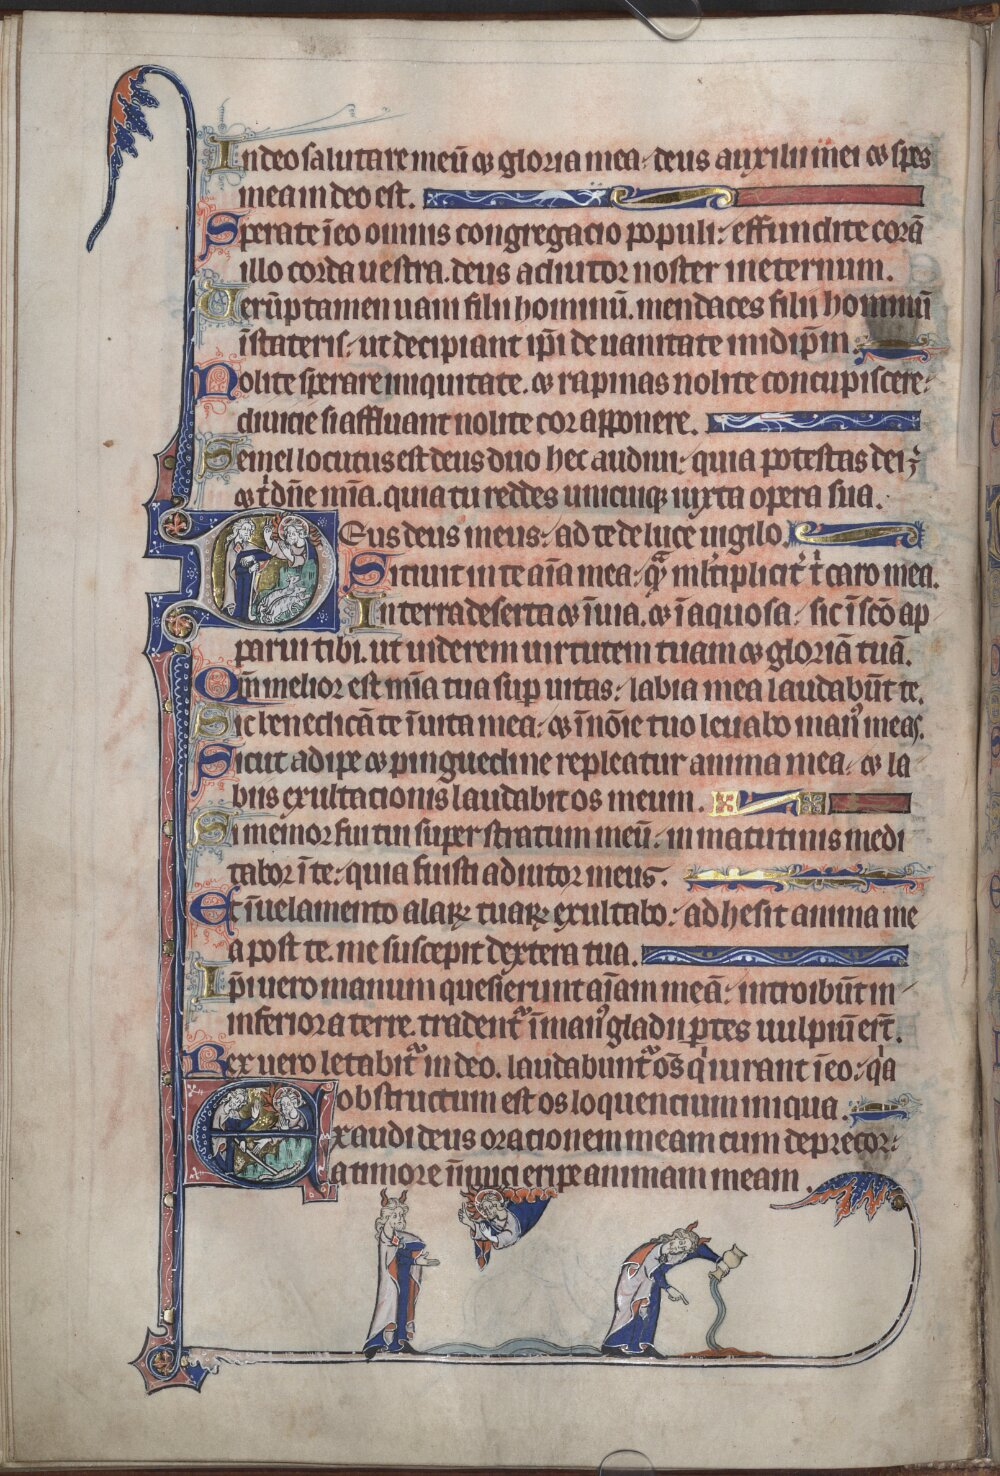 In deo salutare meū ⁊ gloria mea: deus auxilii mei ⁊ spes
mea in deo est.
Sperate ī eo omnis congregacio populi: effundite corā
illo corda uestra. deus adiutor noster in eternum.
Uerūptamen uani filii hominū. mendaces filii hominū
ī stateris: ut decipiant ip̄i de uanitate in idip̄m.
Nolite sperare iniquitate. ⁊ rapinas nolite concupiscere:
diuicie si affluant nolite cor apponere.
Semel locutus est deus duo hec audiui: quia potestas dei ē
⁊ t͛ dn̄e mīa. quia tu reddes unicuiq; iuxta opera sua.
Deus deus meus: ad te de luce uigilo.
Sitiuit in te aīa mea: qͣm ml̄tiplicit͛ t͛ caro mea.
In terra deserta ⁊ īuia. ⁊ īaquosa: sic ī sc̄o ap
parui tibi. ut uiderem uirtutem tuam ⁊ gloriā tuā.
Qm̄ melior est mīa tua sup uitas: labia mea laudabūt te.
Sic benedicā te ī uita mea: ⁊ ī nōīe tuo leuabo manꝰ meas.
Sicut adipe ⁊ pinguedine repleatur anima mea: ⁊ la
biis exultationis laudabit os meum.
Si memor fui tui super stratum meū: in matutinis medi
tabor ī te: quia fuisti adiutor meus.
Et ī uelamento alaꝝ tuaꝝ exultabo: adhesit anima me
a post te. me suscepit dextera tua.
Ip̄i uero in uanum quesierunt aīam meā: introibūt in
inferiora terre. tradentᷣ ī manꝰ gladii ꝑtes uulpiū er̄t.
Rex uero letabitᷣ in deo. laudabuntᷣ om̄s qͥ iurant ī eo: qͥa
obstructum est os loquencium iniqua.
Exaudi deus orationem meam cum deprecor:
a timore inimici eripe animam meam.